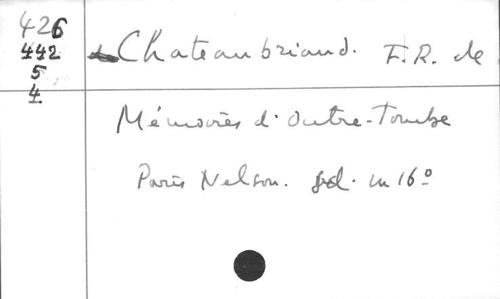 426
442
5
4
Chateaubriand. F.R. de
Mémoires d'Outre-Tombe
Paris Nelson. sd. in 16°